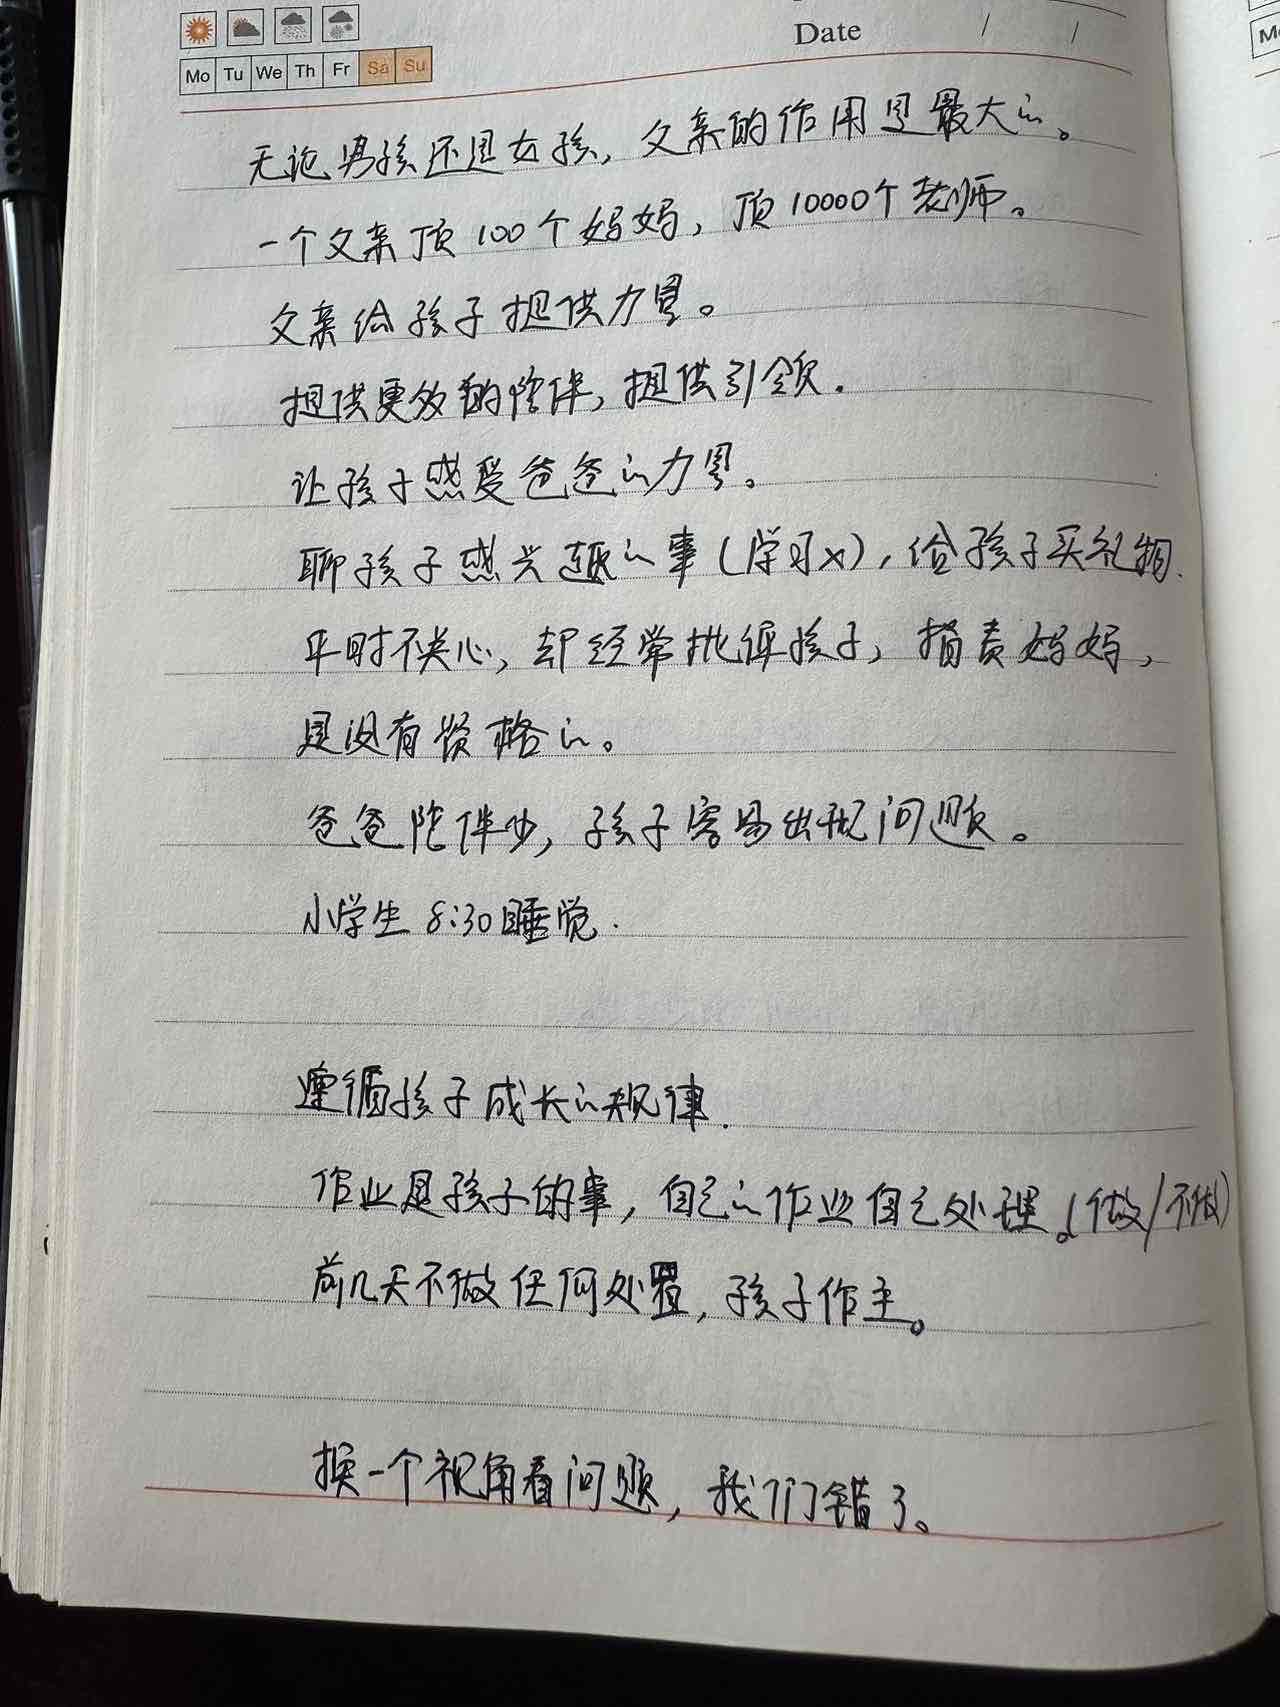 Date / /
Mo Tu We Th Fr Sa Su
无论男孩还是女孩，父亲的作用是最大的。
一个父亲顶100个妈妈，顶10000个老师。
父亲给孩子提供力量。
提供更多的陪伴，提供引领.
让孩子感受爸爸的力量。
聊孩子感兴趣的事(学习×)，给孩子买礼物.
平时不关心，却经常批评孩子，指责妈妈，
是没有资格的。
爸爸陪伴少，孩子容易出现问题。
小学生8:30睡觉.
遵循孩子成长的规律.
作业是孩子的事，自己的作业自己处理。(做/不做)
前几天不做任何处置，孩子作主。
换一个视角看问题，我们错了。